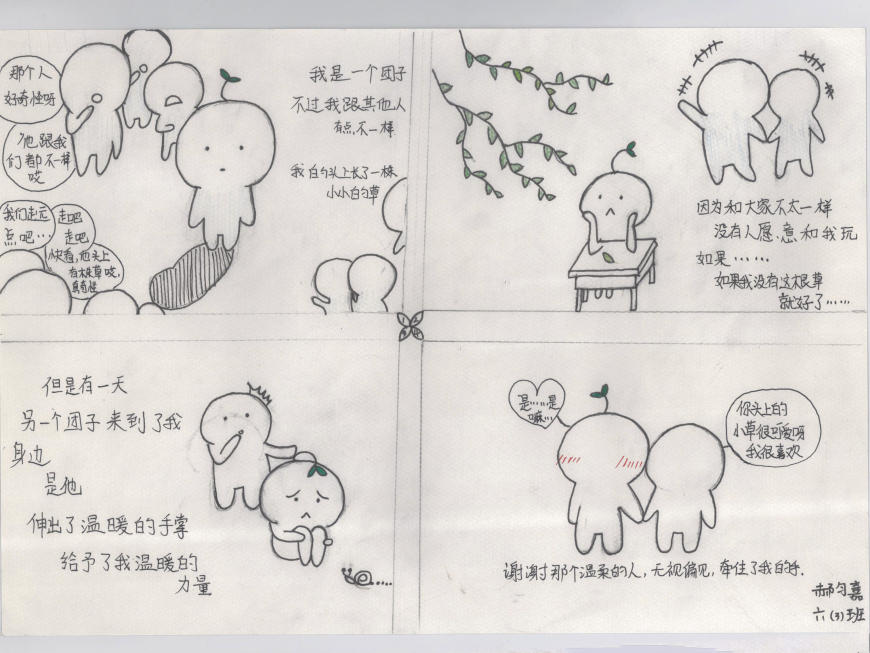 那个人
好奇怪呀
他跟我
们都不一样
哎
我们走远
点吧…
走吧
走吧
快看，他头上
有根草哎，
真奇怪
我是一个团子
不过我跟其他人
有点不一样
我的头上长了一株
小小的草
因为和大家不太一样
没有人愿意和我玩
如果……
如果我没有这根草
就好了……
1 2
3 4
但是有一天
另一个团子来到了我
身边
是他
伸出了温暖的手掌
给予了我温暖的
力量
是……是
嘛…
你头上的
小草很可爱呀
我很喜欢
谢谢那个温柔的人，无视偏见，牵住了我的手.
郝匀嘉
六(3)班